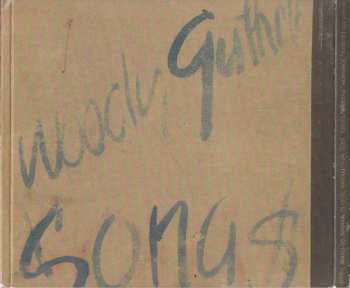 woody Guthrie
Songs